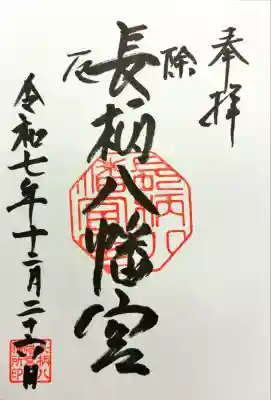 奉拝
除厄
長柄八幡宮
令和七年十二月二十六日